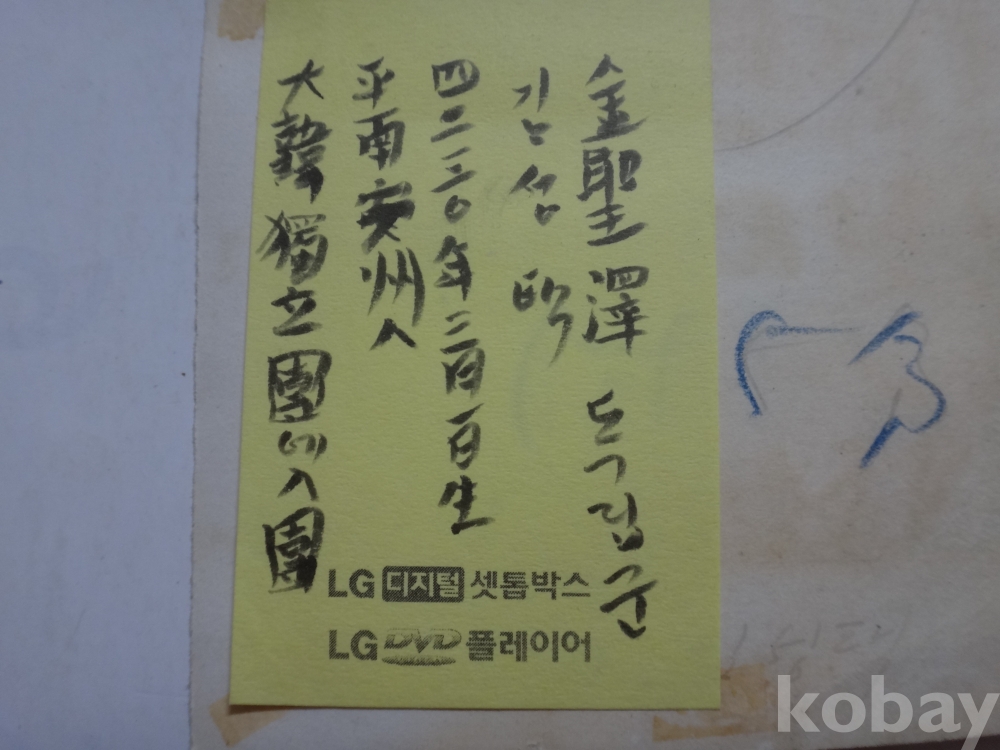 金聖澤 독립군
김성택
四二三〇年二月一日生
平南安州人
大韓獨立團에入團
LG 디지털 셋톱박스
LG DVD 플레이어
kobay